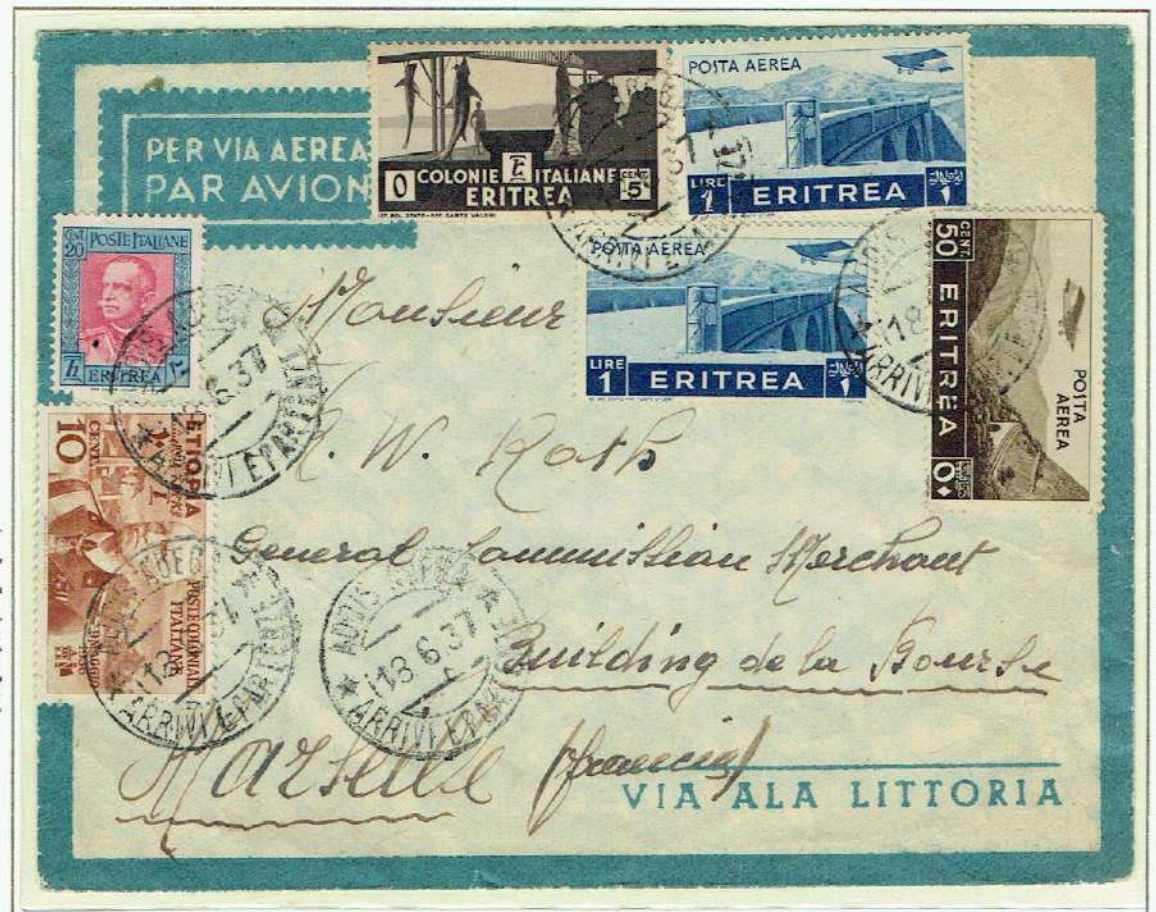 PER VIA AEREA
PAR AVION
COLONIE ITALIANE
ERITREA
CENT. 5
POSTA AEREA
LIRE
1
ERITREA
POSTA AEREA
LIRE
1
ERITREA
CENT.
50
ERITREA
POSTA
AEREA
CENT
20
POSTE ITALIANE
ERITREA
ETIOPIA
10
CENT.
POSTE COLONIALI
ITALIANE
9 MAGGIO
1936
18 6 37
ARRIVI E PARTENZE
ADDIS
18 6 37
ARRIVI E PARTENZE
Monsieur
W. Roth
General Commission Merchant
Building de la Bourse
Marseille (francia)
VIA ALA LITTORIA